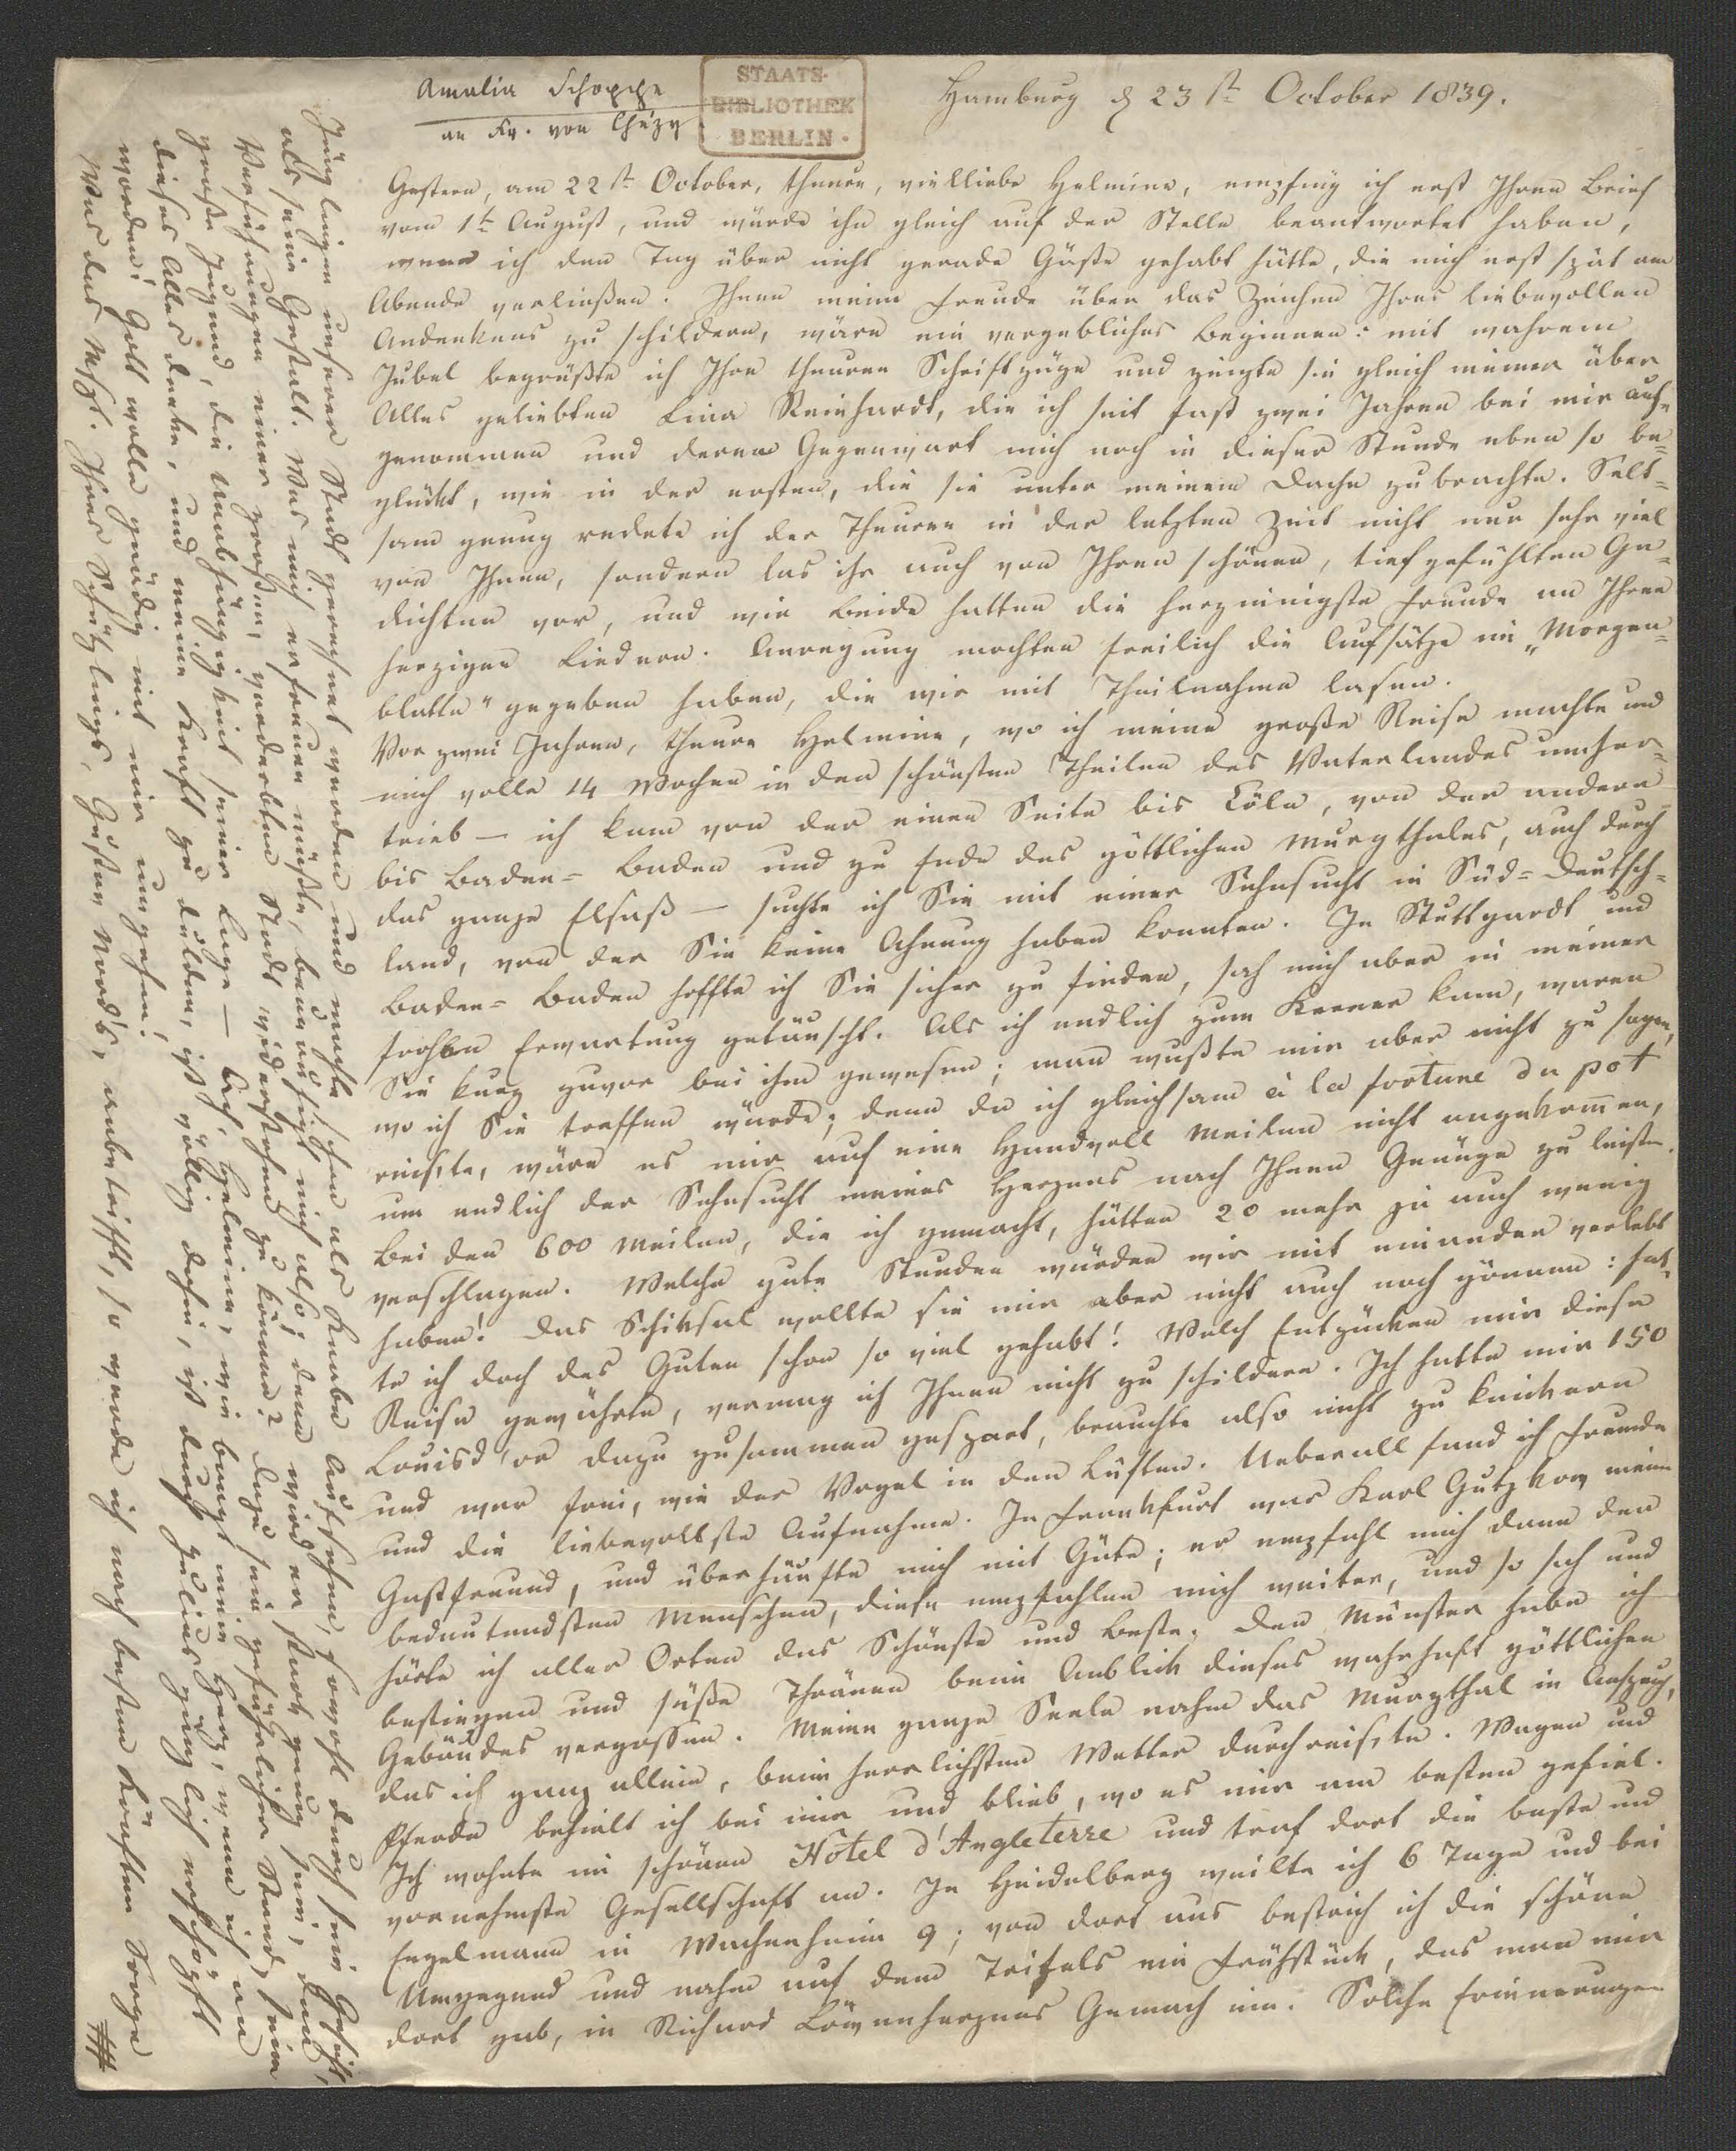 Amalia Schoppe
an Fr. von Chézy
STAATS-
BIBLIOTHEK
BERLIN
Hamburg d 23st October 1839.
Gestern, am 22st October, theure, vielliebe Helmine, empfing ich erst Ihren Brief
vom 1t August, und würde ihn gleich auf der Stelle beantwortet haben,
wenn ich den Tag über nicht gerade Gäste gehabt hätte, die mich erst spät am
Abende verließen. Ihnen meine Freude über das Zeichen Ihres liebevollen
Andenkens zu schildern, wäre ein vergebliches Beginnen: mit wahrem
Jubel begrüßte ich Ihre theuren Schriftzüge und zeigte sie gleich meiner über
Alles geliebten Lina Reinhardt, die ich seit fast zwei Jahren bei mir auf-
genommen und deren Gegenwart mich noch in dieser Stunde eben so be-
glückt, wie in der ersten, die sie unter meinem Dache zubrachte. Selt-
sam genug redete ich der Theuren in der letzten Zeit nicht nur sehr viel
von Ihnen, sondern las ihr auch von Ihren schönen, tiefgefühlten Ge-
dichten vor, und wir Beide hatten die herzinnigste Freude an Ihren
herzigen Liedern. Anregung mochten freilich die Aufsätze im „Morgen-
blatte" gegeben haben, die wir mit Theilnahme lasen.
Vor zwei Jahren, theure Helmine, wo ich meine große Reise machte und
mich volle 14 Wochen in den schönsten Theilen des Vaterlandes umher-
trieb — ich kam von der einen Seite bis Cöln, von der andern
bis Baden-Baden und zu Ende des göttlichen Murgthales, auch durch
das ganze Elsaß — suchte ich Sie mit einer Sehnsucht in Süd-Deutsch-
land, von der Sie keine Ahnung haben konnten. In Stuttgardt und
Baden-Baden hoffte ich Sie sicher zu finden, sah mich aber in meiner
frohen Erwartung getäuscht. Als ich endlich zum Kerner kam, waren
Sie kurz zuvor bei ihm gewesen; man wußte mir aber nicht zu sagen,
wo ich Sie treffen würde; denn da ich gleichsam à la fortune du pot
reis'te, wäre es mir auf eine Handvoll Meilen nicht angekommen,
um endlich der Sehnsucht meines Herzens nach Ihnen Genüge zu leisten.
Bei den 600 Meilen, die ich gemacht, hätten 20 mehr ja auch wenig
verschlagen. Welche gute Stunden würden wir mit einander verlebt
haben! Das Schiksal wollte sie mir aber nicht auch noch gönnen: hat-
te ich doch des Guten schon so viel gehabt! Welch Entzücken mir diese
Reise gewährte, vermag ich Ihnen nicht zu schildern. Ich hatte mir 150
Louisd'or dazu zusammen gespart, brauchte also nicht zu knickern
und war frei, wie der Vogel in den Lüften. Ueberall fand ich Freunde
und die liebevollste Aufnahme. In Frankfurt war Karl Gutzkow mein
Gastfreund, und überhäufte mich mit Güte; er empfahl mich dann den
bedeutendsten Menschen, diese empfahlen mich weiter, und so sah und
hörte ich aller Orten das Schönste und Beste. Den Münster habe ich
bestiegen und süße Thränen beim Anblick dieses wahrhaft göttlichen
Gebäudes vergossen. Meine ganze Seele nahm das Murgthal in Anspruch,
das ich ganz allein, beim herrlichsten Wetter durchreis'te. Wagen und
Pferde behielt ich bei mir und blieb, wo es mir am besten gefiel.
Ich wohnte im schönen Hôtel d'Angleterre und traf dort die beste und
vornehmste Gesellschaft an. In Heidelberg weilte ich 6 Tage und bei
Engelmann in Wachenheim 9; von dort aus bestrich ich die schöne
Umgegend und nahm auf dem Trifels ein Frühstück, das man mir
dort gab, in Richard Löwenherzens Gemach ein. Solche Erinnerungen
Jünglingen unserer Stadt gerechnet werden und machte schon als Knabe Aufsehen, sowohl durch sein Gesicht,
als seine Gestalt. Was mich erfreuen müßte, beunruhigt mich also; denn wird er stark genug sein, den
Verführungen einer großen, verderbten Stadt widerstehen zu können? Dazu sein gefährlicher Stand, seine
große Jugend, die Unabhängigkeit seiner Lage — Ach, Helmine, wie bangt mein Herz, wenn ich an
dieses Alles denke, und meine Kraft zu dulden, ist völlig dahin, ist durch Julius gänzlich erschöpft
worden! Gott wolle gnädig mit mir umgehen!
Was das Mspt. Ihres Schützlings, Gustav Nord's, anbetrifft, so werde ich nach besten Kräften Sorge